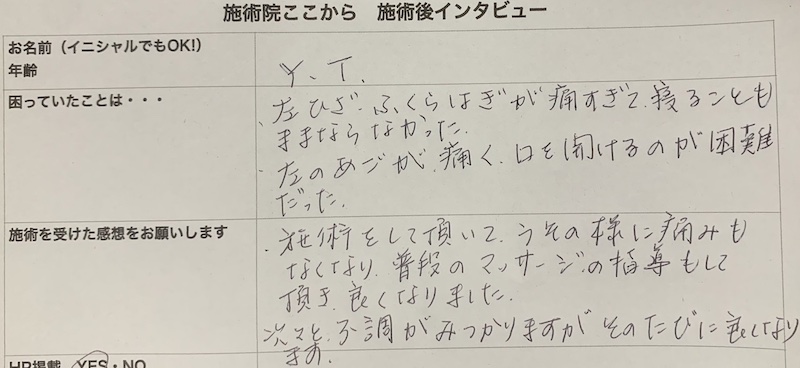 施術院ここから　施術後インタビュー
お名前（イニシャルでもOK!）
年齢
Y．T．
困っていたことは・・・
・左ひざ、ふくらはぎが痛すぎて、寝ることも
ままならなかった。
・左のあごが、痛く、口を開けるのが困難
だった。
施術を受けた感想をお願いします
・施術をして頂いて、うその様に痛みも
なくなり、普段のマッサージの指導もして
頂き、良くなりました。
次々と、不調がみつかりますがそのたびに良くなり
ます。
HP掲載　YES・NO